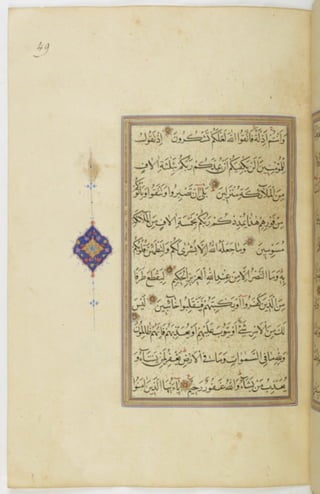 49
وَأَنتُمْ أَذِلَّةٌ فَاتَّقُوا اللَّهَ لَعَلَّكُمْ تَشْكُرُونَ إِذْ تَقُولُ
لِلْمُؤْمِنِينَ أَلَن يَكْفِيَكُمْ أَن يُمِدَّكُمْ رَبُّكُم بِثَلَاثَةِ آلَافٍ
مِنَ الْمَلَائِكَةِ مُنزَلِينَ بَلَى إِن تَصْبِرُوا وَتَتَّقُوا وَيَأْتُوكُم
مِن فَوْرِهِمْ هَذَا يُمْدِدْكُمْ رَبُّكُم بِخَمْسَةِ آلَافٍ مِنَ الْمَلَائِكَةِ
مُسَوِّمِينَ وَمَا جَعَلَهُ اللَّهُ إِلَّا بُشْرَى لَكُمْ وَلِتَطْمَئِنَّ قُلُوبُكُم
بِهِ وَمَا النَّصْرُ إِلَّا مِنْ عِندِ اللَّهِ الْعَزِيزِ الْحَكِيمِ لِيَقْطَعَ طَرَفًا
مِنَ الَّذِينَ كَفَرُوا أَوْ يَكْبِتَهُمْ فَيَنقَلِبُوا خَائِبِينَ لَيْسَ
لَكَ مِنَ الْأَمْرِ شَيْءٌ أَوْ يَتُوبَ عَلَيْهِمْ أَوْ يُعَذِّبَهُمْ فَإِنَّهُمْ ظَالِمُونَ
وَلِلَّهِ مَا فِي السَّمَوَاتِ وَمَا فِي الْأَرْضِ يَغْفِرُ لِمَن يَشَاءُ وَ
يُعَذِّبُ مَن يَشَاءُ وَاللَّهُ غَفُورٌ رَحِيمٌ يَا أَيُّهَا الَّذِينَ آمَنُوا